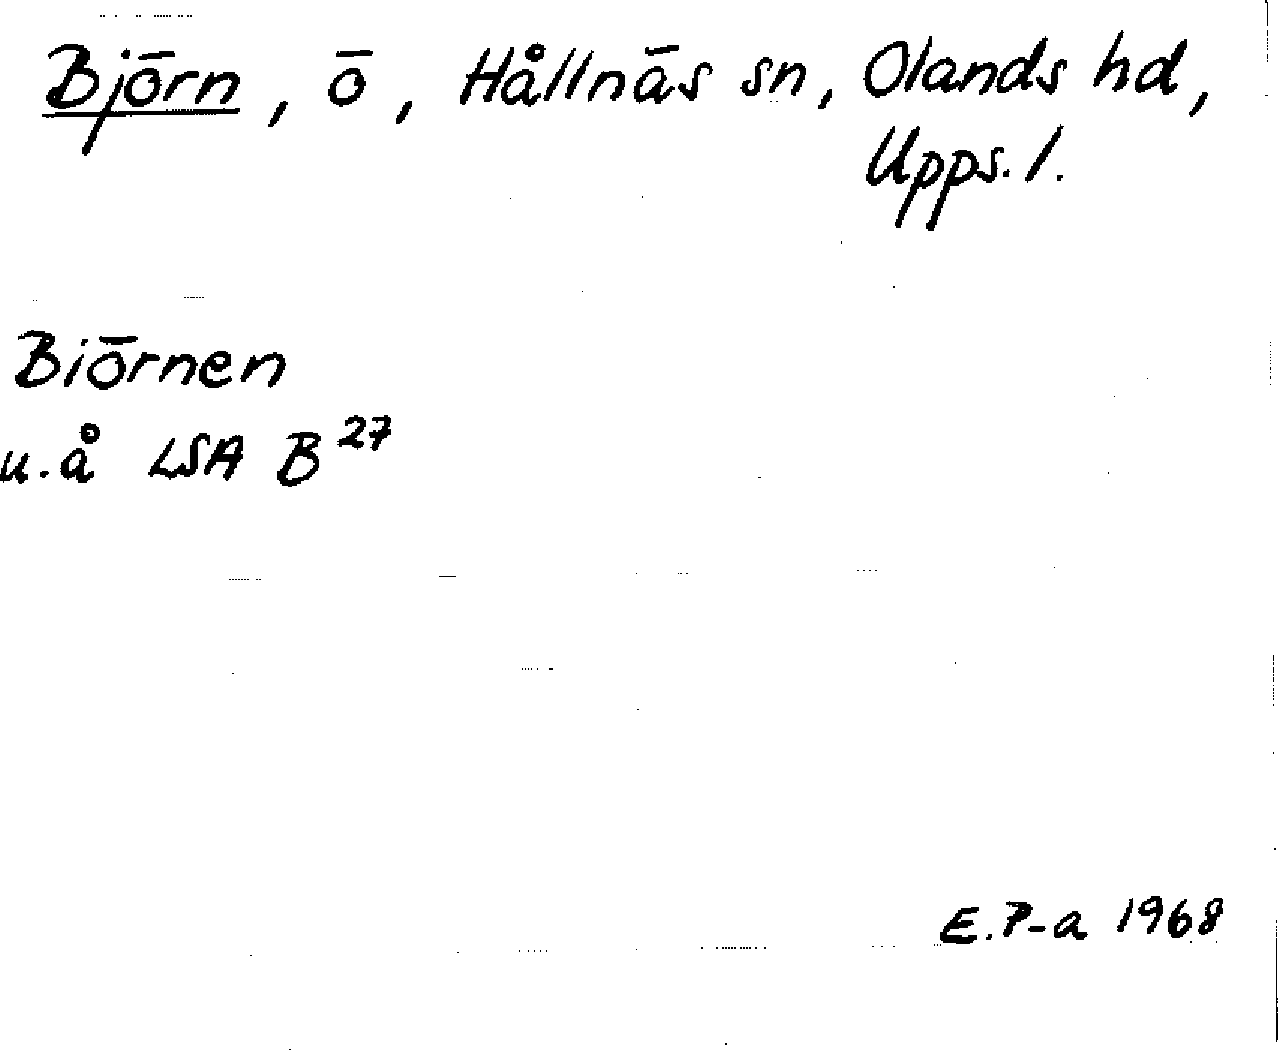 Björn, ö, Hållnäs sn, Olands hd,
Upps. l.
Biörnen
u.å LSA B 27
E.P-a 1968